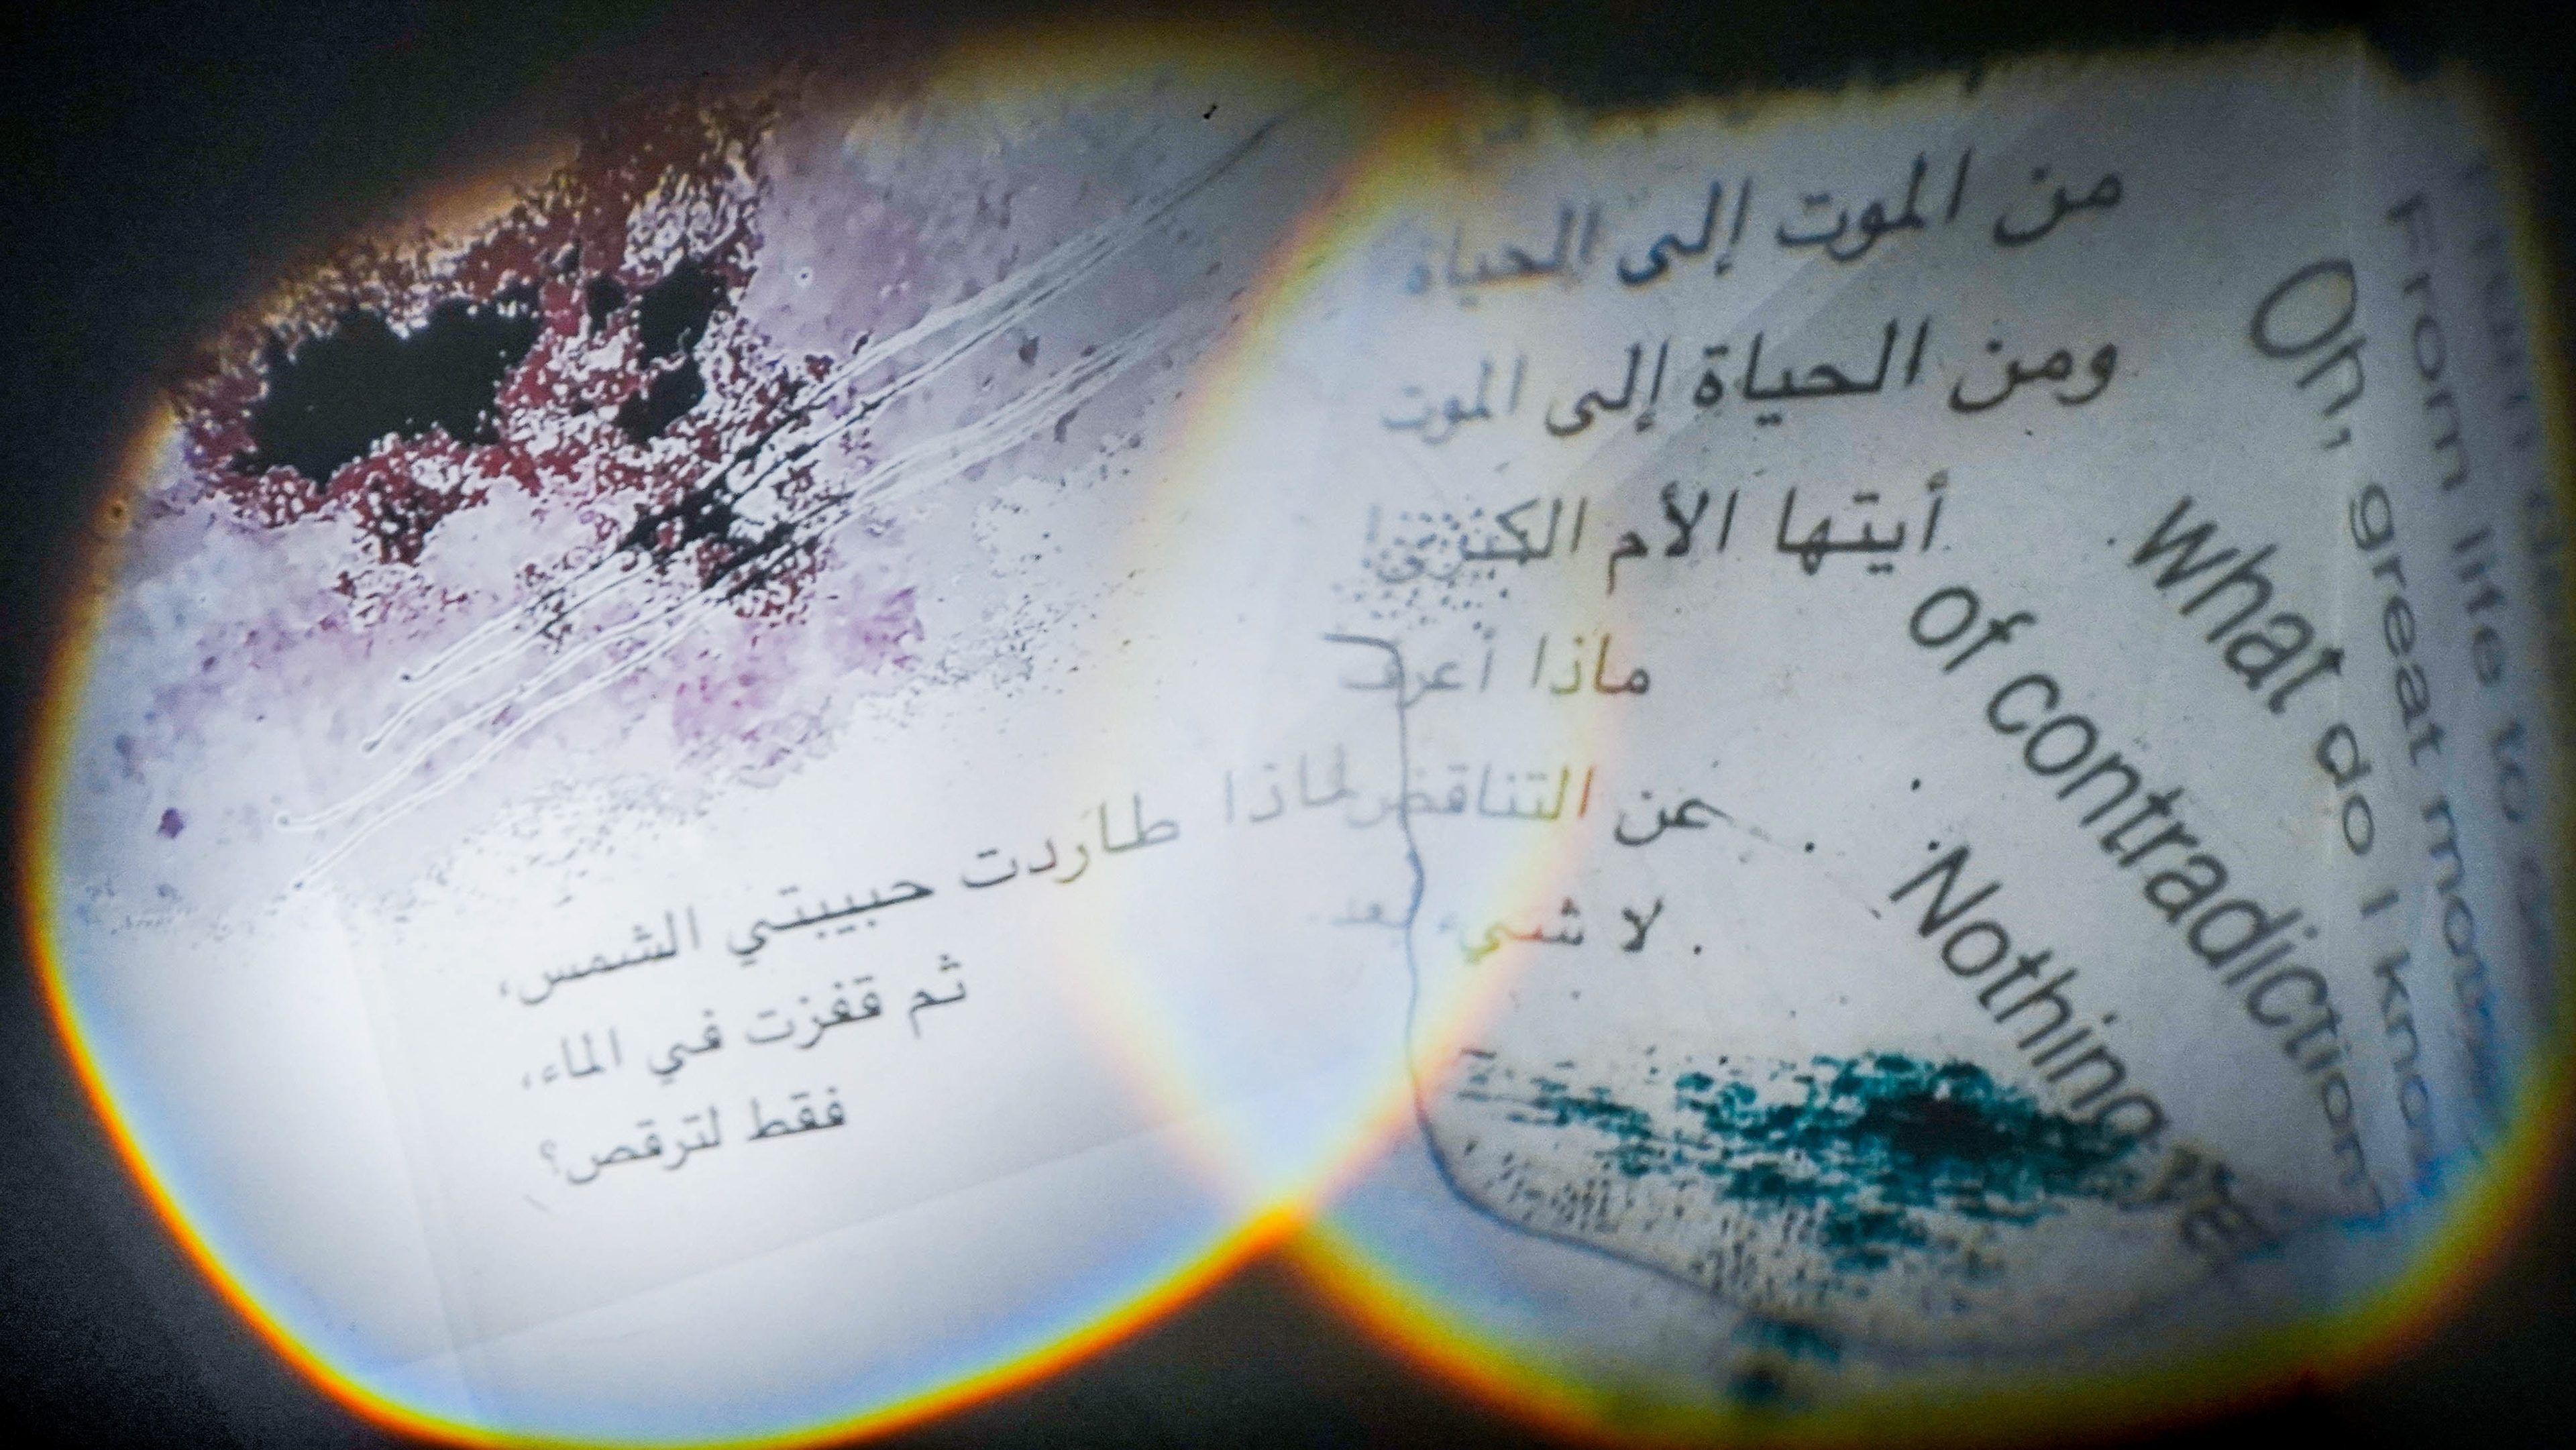 من الموت إلى الحياة
ومن الحياة إلى الموت
أيتها الأم الكبرى
ماذا أعرف
عن التناقض
لا شيء بعد
لماذا طاردت حبيبتي الشمس،
ثم قفزت في الماء،
فقط لترقص؟
From life to
Oh, great mother
what do I know
of contradiction
Nothing yet